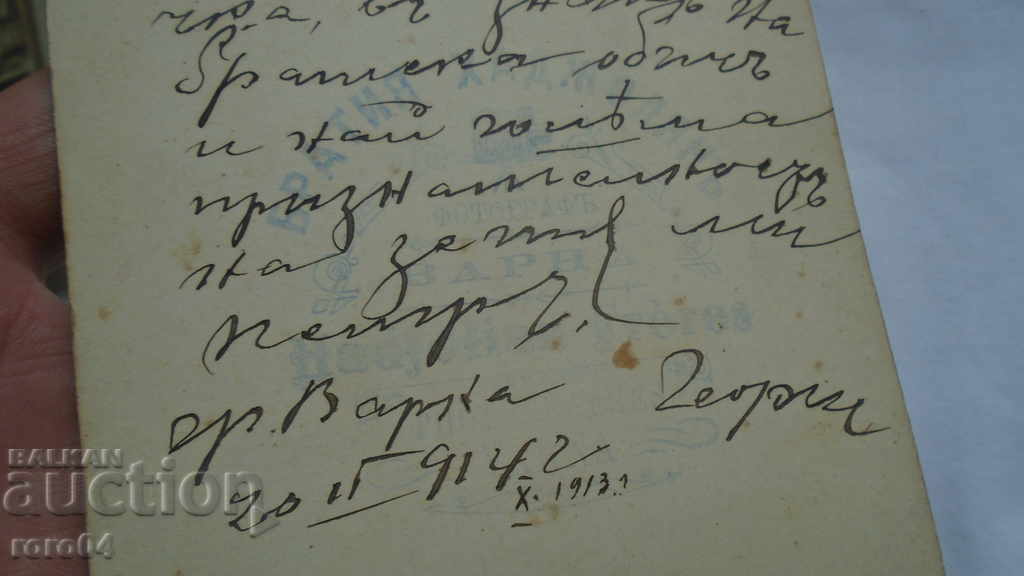 въ знакъ на
братска обичь
и най голѣма
признателность
на зетя ми
Петръ,
гр. Варна Георги
20 II 914 г
X. 1913 г
ФОТОГРАФЪ
ВАРНА
BALKAN
auction
roro64